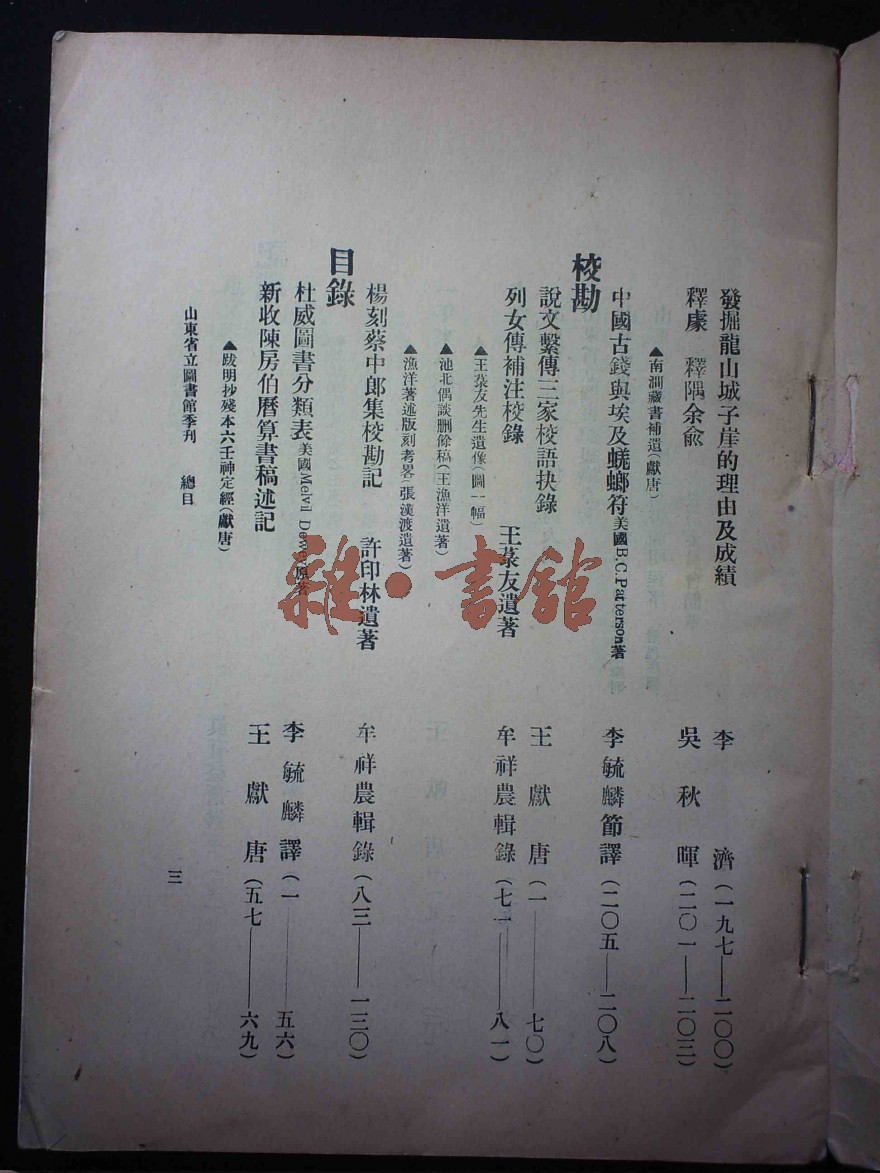 發掘龍山城子崖的理由及成績 李濟(一九七——二〇〇)
釋豦 釋隅余兪 吳秋暉(二〇一——二〇三)
▲南澗藏書補遺(獻唐)
中國古錢與埃及蜣螂符美國B.C.Patterson著 李毓麟節譯(二〇五——二〇八)
校勘
說文繫傳三家校語抉錄 王獻唐(一——七〇)
列女傳補注校錄 王菉友遺著 牟祥農輯錄(七一——八一)
▲王菉友先生遺像(圖一幅)
▲池北偶談刪餘稿(王漁洋遺著)
▲漁洋著述版刻考畧(張漢渡遺著)
楊刻蔡中郎集校勘記 許印林遺著 牟祥農輯錄(八三——一三〇)
目錄
杜威圖書分類表美國Melvil Dewey原著 李毓麟譯(一——五六)
新收陳房伯曆算書稿述記 王獻唐(五七——六九)
▲跋明抄殘本六壬神定經(獻唐)
山東省立圖書館季刊 總目 三
雜·書館